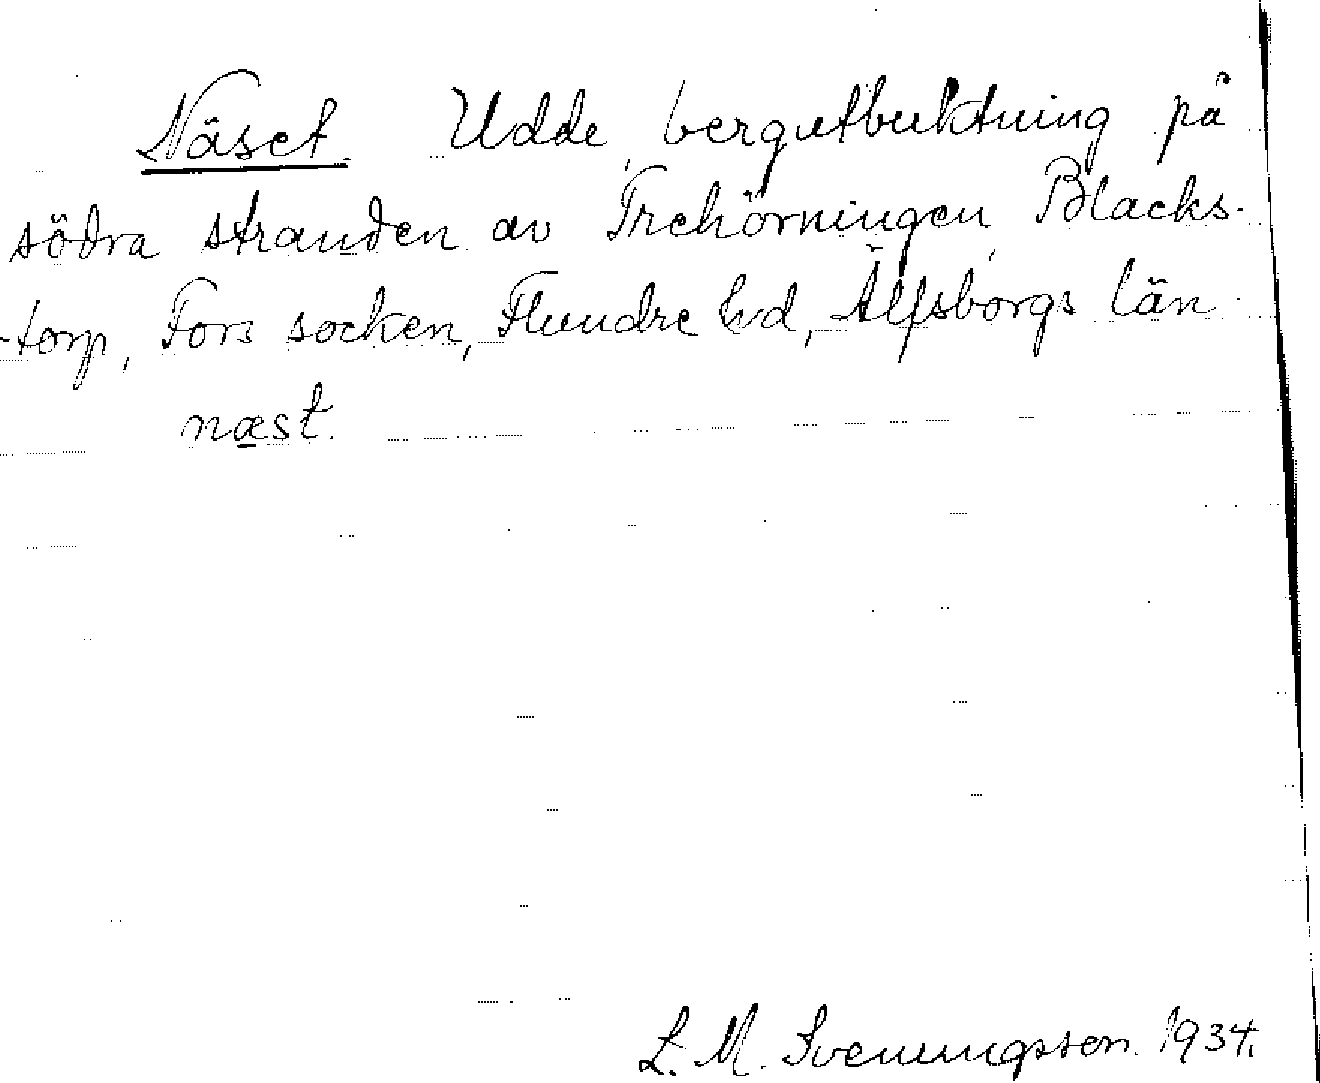 Näset. Udde, bergutbuktning på
södra stranden av Trehörningen, Blacks-
torp, Fors socken, Flundre hd, Älfsborgs län.
næst.
L. M. Svenungsson. 1934.